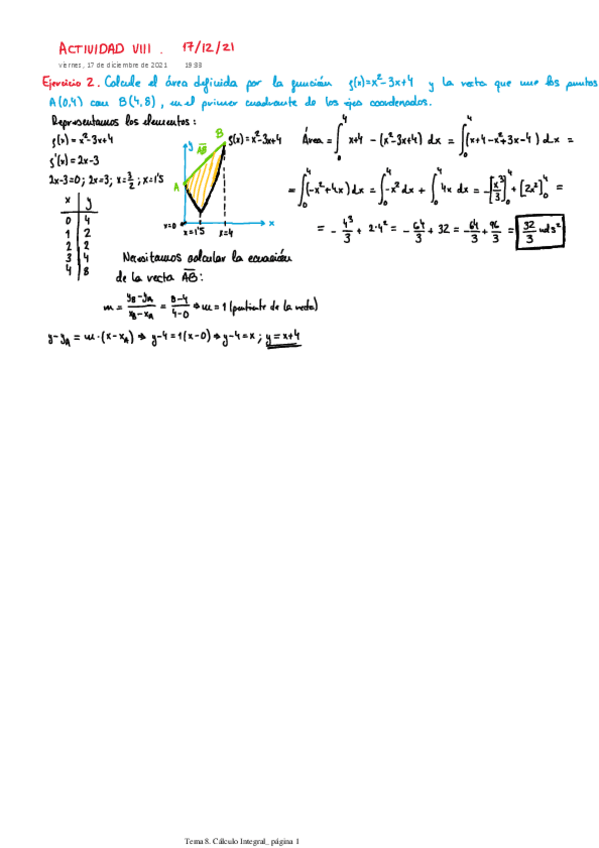 ACTIVIDAD VIII. 17/12/21
viernes, 17 de diciembre de 2021 19:33
Ejercicio 2. Calcule el área definida por la función f(x)=x²-3x+4 y la recta que une los puntos
A(0,4) con B(4,8), en el primer cuadrante de los ejes coordenados.
Representamos los elementos:
f(x) = x²-3x+4
f'(x) = 2x-3
2x-3=0; 2x=3; x=3/2; x=1'5
x y
0 4
1 2
2 2
3 4
4 8
y
AB
B
f(x)=x²-3x+4
A
x=0
x=1'5
x=4
x
Área = ∫₀⁴ x+4 - (x²-3x+4) dx = ∫₀⁴ (x+4-x²+3x-4) dx =
= ∫₀⁴ (-x²+4x) dx = ∫₀⁴ -x² dx + ∫₀⁴ 4x dx = -[x³/3]₀⁴ + [2x²]₀⁴ =
= - 4³/3 + 2·4² = - 64/3 + 32 = - 64/3 + 96/3 = 32/3 uds²
Necesitamos calcular la ecuación
de la recta AB:
m = (yB-yA)/(xB-xA) = (8-4)/(4-0) ⇒ m=1 (pendiente de la recta)
y-yA = m·(x-xA) ⇒ y-4=1(x-0) ⇒ y-4=x; y=x+4
Tema 8. Cálculo Integral_ página 1